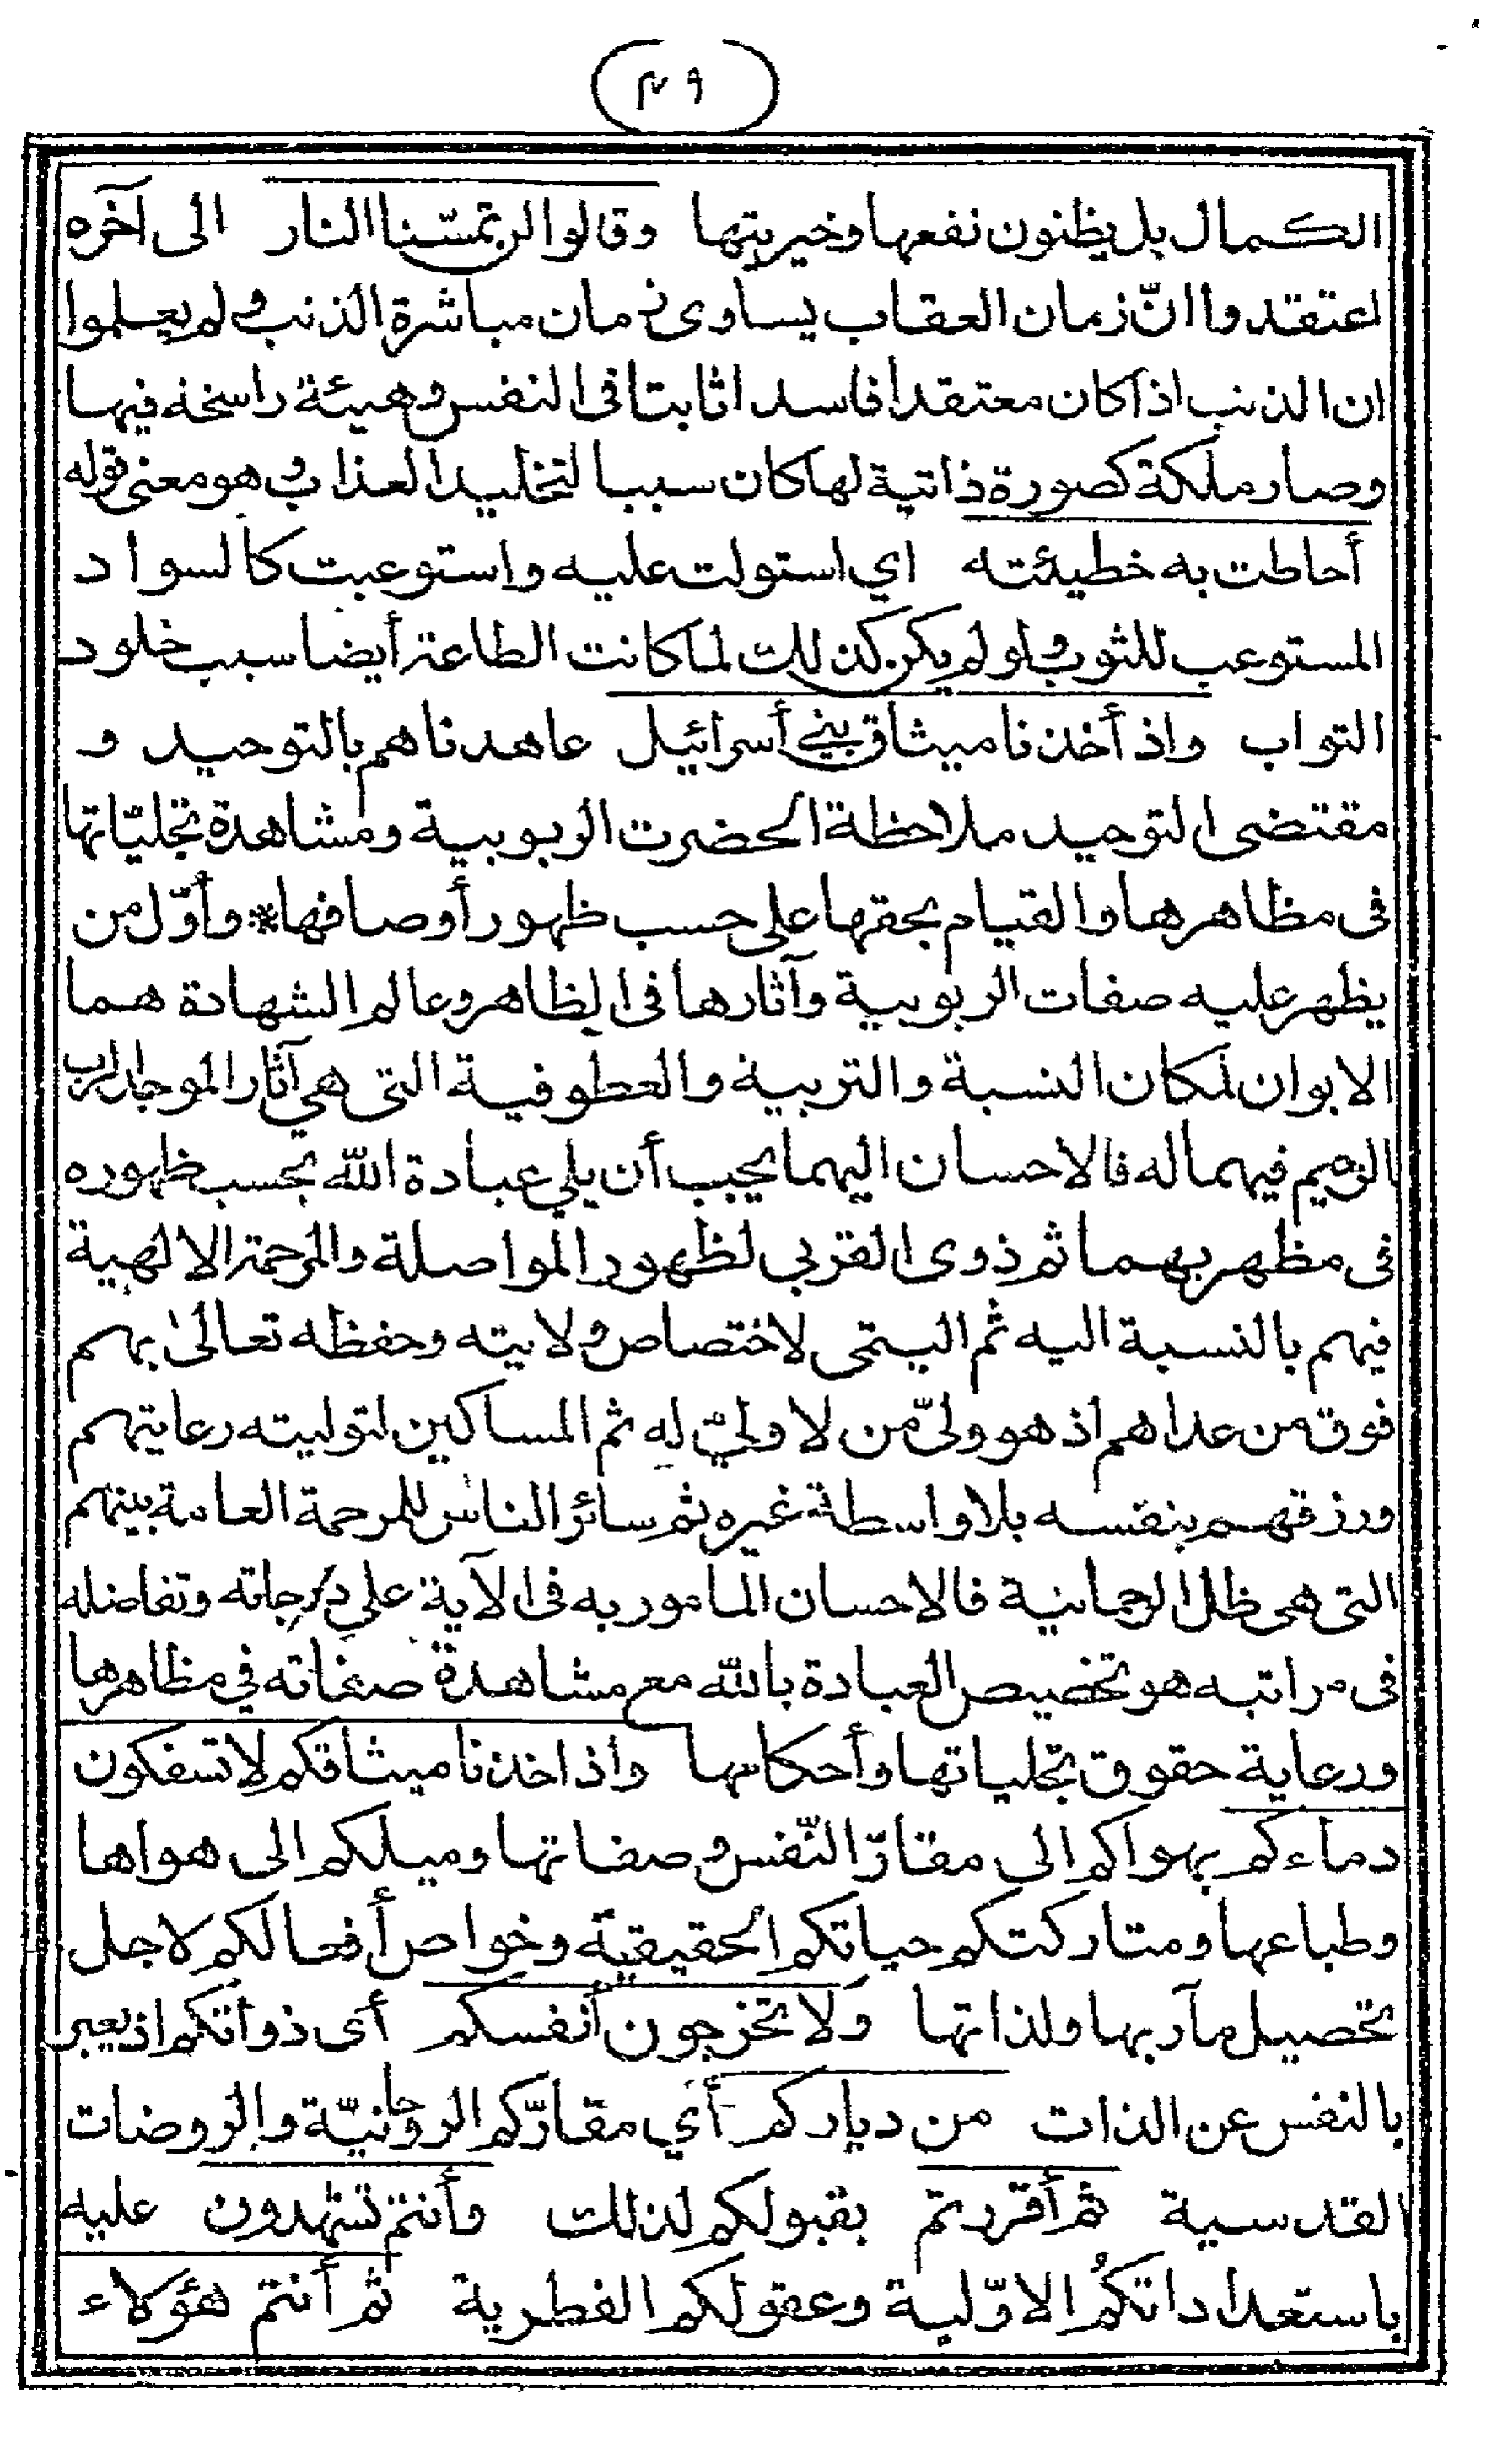 ٤٩
الكمال بل يظنون نفعها وخيريتها وقالوا لن تمسّنا النار الى آخره
اعتقدوا انّ زمان العقاب يساوى زمان مباشرة الذنب ولم يعلموا
ان الذنب اذا كان معتقدا فاسدا ثابتا فى النفس وهيئة راسخة فيها
وصار ملكة كصورة ذاتية لها كان سببا لتخليد العذاب وهو معنى قوله
أحاطت به خطيئته اي استولت عليه واستوعبت كالسواد
المستوعب للثوب ولو لم يكن كذلك لما كانت الطاعة أيضا سبب خلود
الثواب واذ أخذنا ميثاق بنى أسرائيل عاهدناهم بالتوحيد و
مقتضى التوحيد ملاحظة الحضرت الربوبية ومشاهدة تجليّاتها
فى مظاهرها والقيام بحقها على حسب ظهور أوصافها* وأوّل من
يظهر عليه صفات الربوبية وآثارها فى الظاهر وعالم الشهادة هما
الابوان لمكان النسبة والتربية والعطوفية التى هي آثار الموجد الرب
الرحيم فيهما له فالاحسان اليهما يجب أن يلي عبادة الله بحسب ظهوره
فى مظهر بهما ثم ذوى القربي لظهور المواصلة والمرحمة الالهية
فيهم بالنسبة اليه ثم اليتمى لاختصاص ولايته وحفظه تعالى بهم
فوق من عداهم اذ هو ولىّ من لا ولىّ له ثم المساكين لتوليته رعايتهم
ورزقهم بنفسه بلا واسطة غيره ثم سائر الناس للمرحمة العامة بينهم
التى هى ظلل الرحمانية فالاحسان المامور به فى الآية علي درجاته وتفاضله
فى مراتبه هو تخصيص العبادة بالله مع مشاهدة صفاته في مظاهرها
ورعاية حقوق تجلياتها وأحكامها واذ اخذنا ميثاقكم لا تسفكون
دماءكم بهواكم الى مقارّ النّفس وصفاتها وميلكم الى هواها
وطباعها ومتاركتكم حياتكم الحقيقية وخواص أفعالكم لاجل
تحصيل مآربها ولذاتها ولا تخرجون أنفسكم أى ذواتكم اذ يعبر
بالنفس عن الذات من دياركم أي مقارّكم الروحانيّة والروضات
القدسية ثم أقررتم بقبولكم لذلك وأنتم تشهدون عليه
باستعداداتكُم الاوّلية وعقولكم الفطرية ثم أنتم هؤلاء